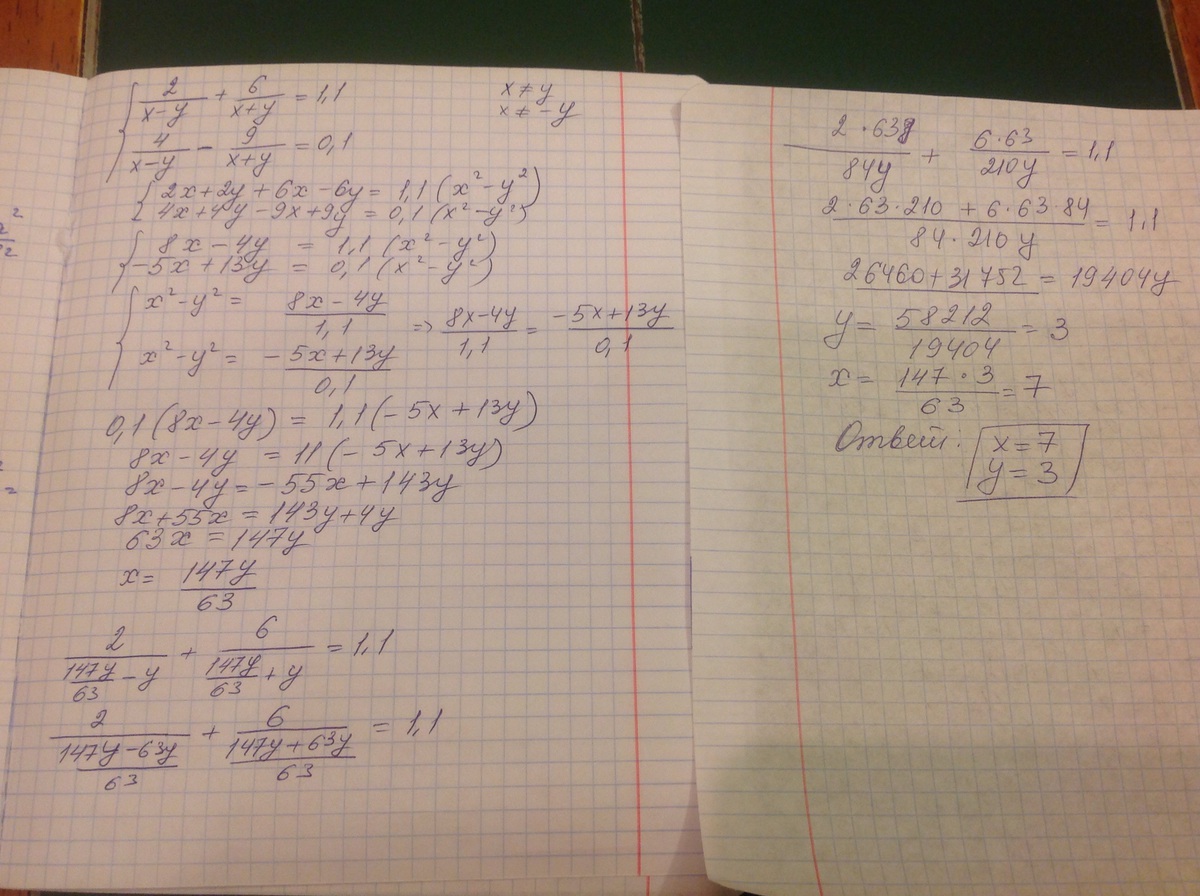 2/(x-y) + 6/(x+y) = 1,1    x ≠ y
x ≠ -y
4/(x-y) - 9/(x+y) = 0,1
{ 2x+2y+6x-6y = 1,1(x²-y²)
{ 4x+4y-9x+9y = 0,1(x²-y²)
{ 8x-4y = 1,1(x²-y²)
{ -5x+13y = 0,1(x²-y²)
{ x²-y² = (8x-4y)/1,1 => (8x-4y)/1,1 = (-5x+13y)/0,1
{ x²-y² = (-5x+13y)/0,1
0,1(8x-4y) = 1,1(-5x+13y)
8x-4y = 11(-5x+13y)
8x-4y = -55x+143y
8x+55x = 143y+4y
63x = 147y
x = 147y/63
2/(147y/63 - y) + 6/(147y/63 + y) = 1,1
2/((147y-63y)/63) + 6/((147y+63y)/63) = 1,1
2·63/84y + 6·63/210y = 1,1
(2·63·210 + 6·63·84)/(84·210y) = 1,1
26460+31752 = 19404y
y = 58212/19404 = 3
x = 147·3/63 = 7
Ответ: x=7
y=3